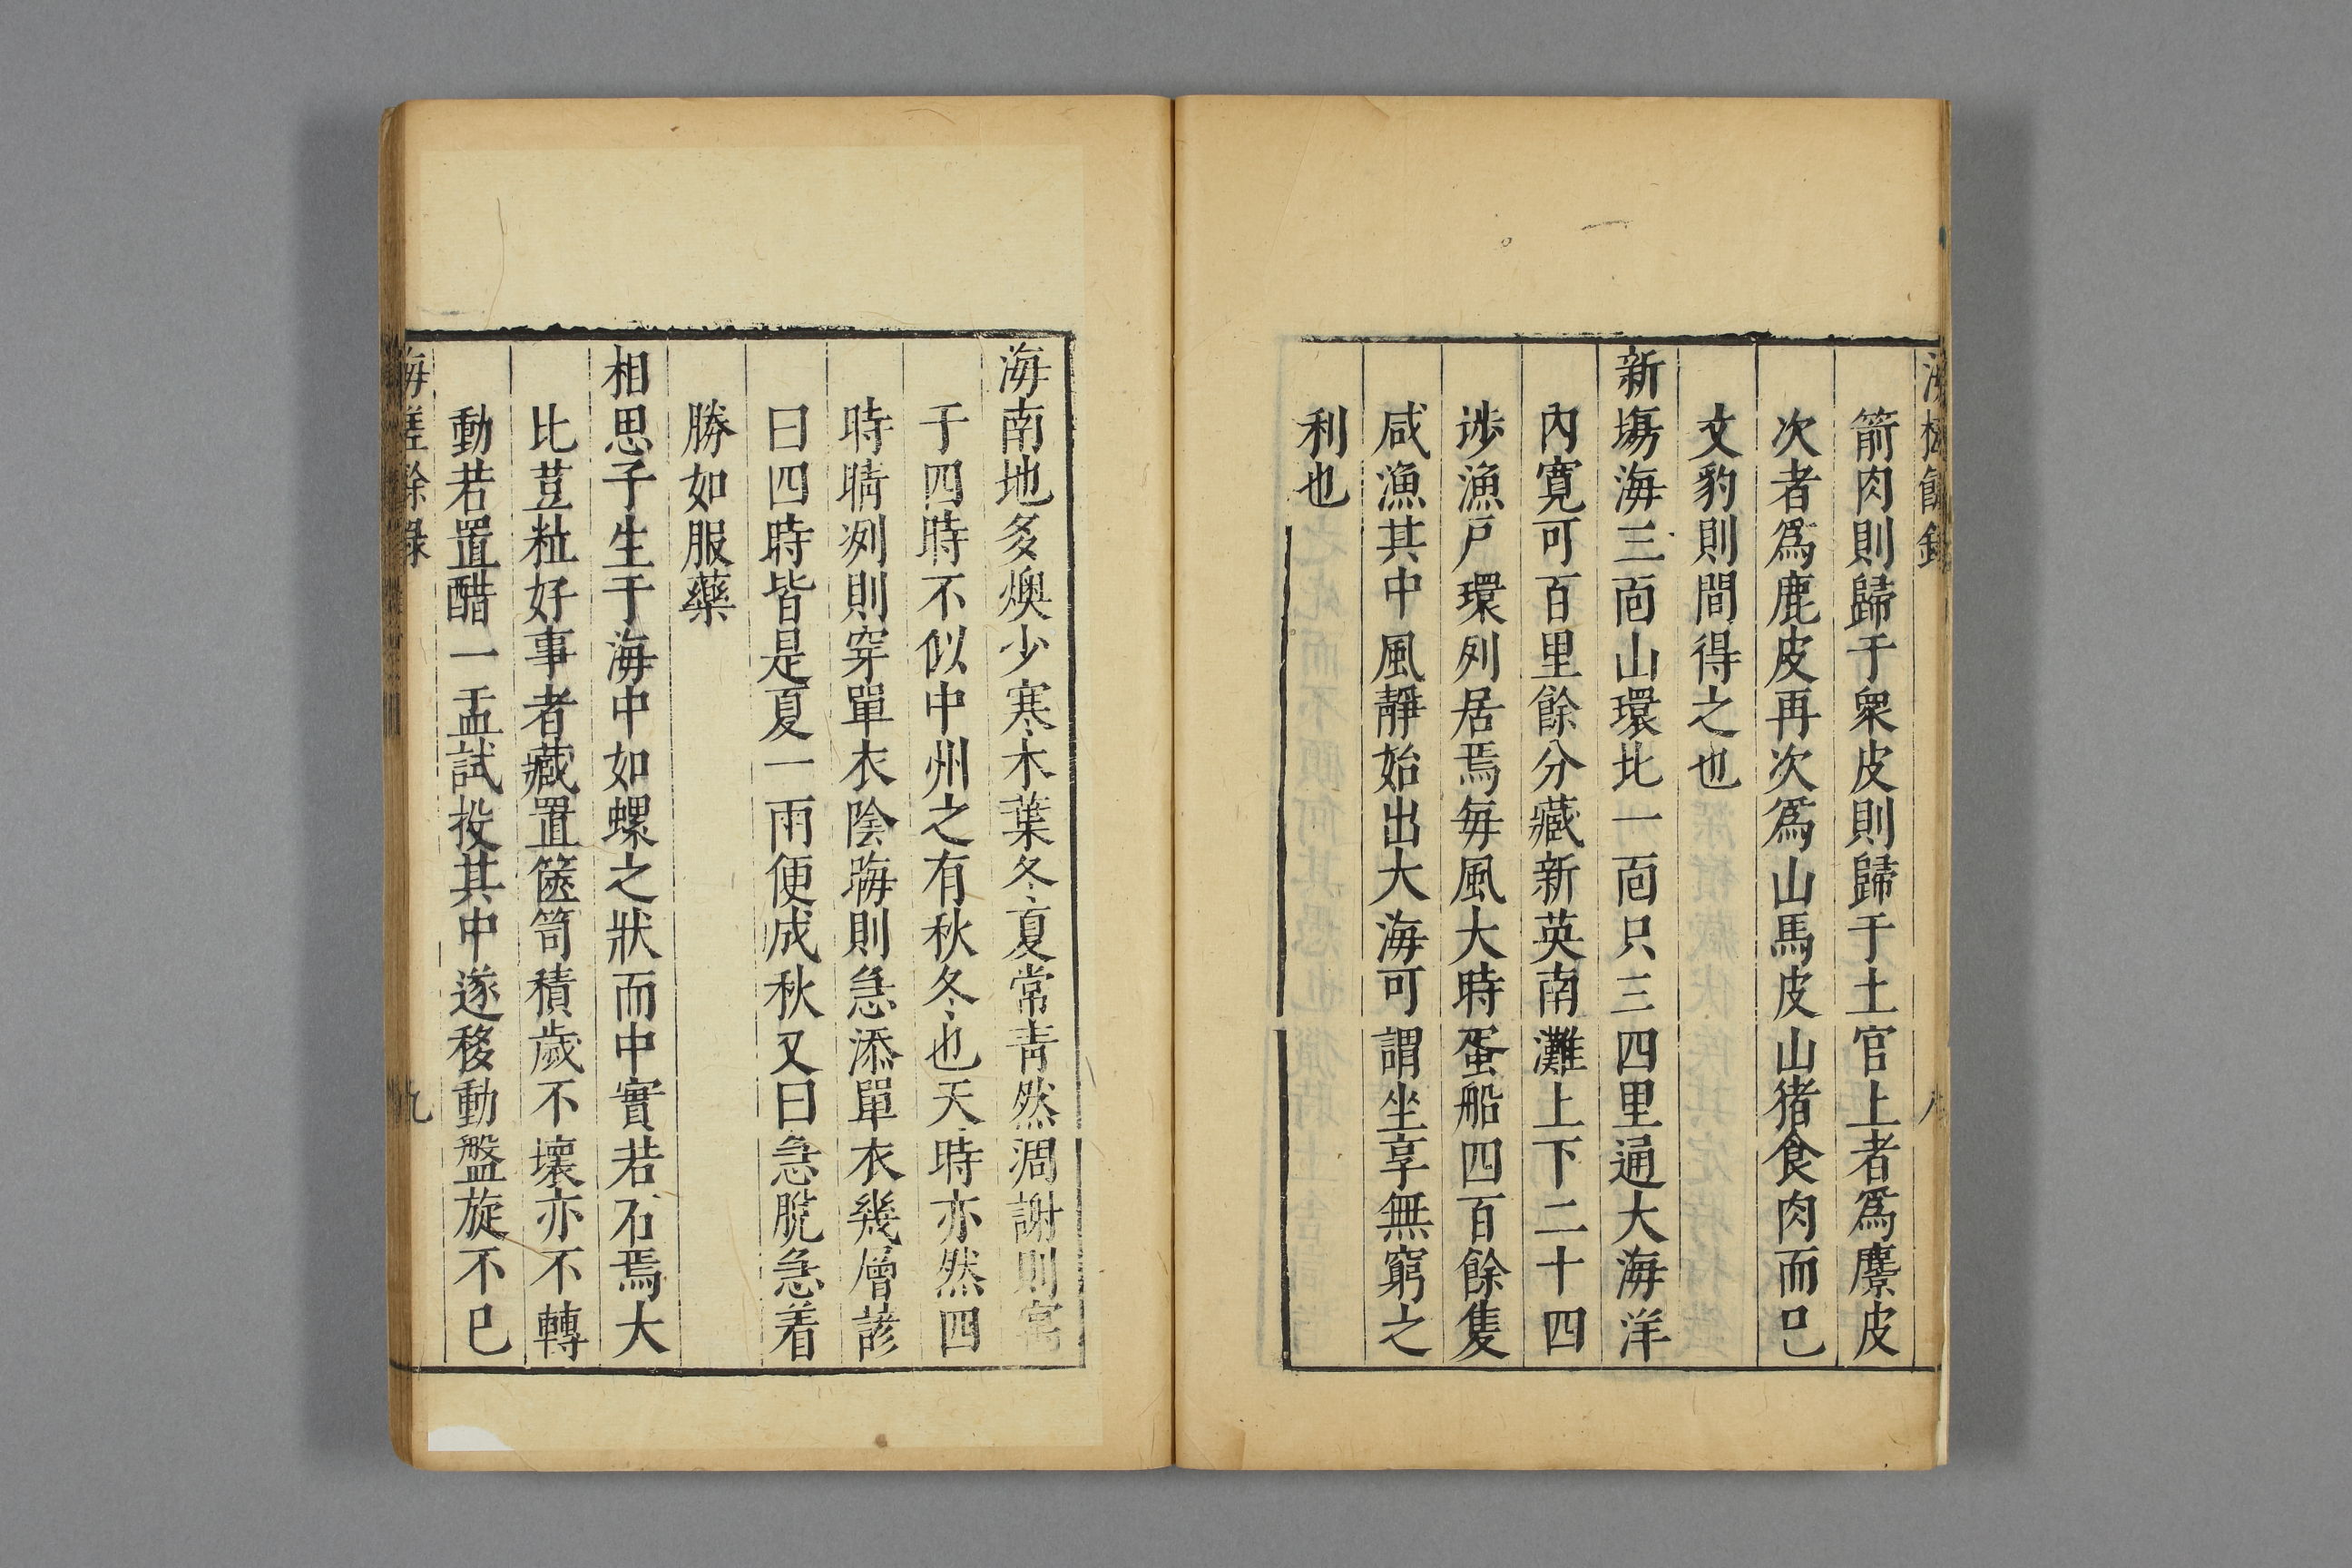 海槎餘錄
八
箭肉則歸于衆皮則歸于土官上者爲麖皮
次者爲鹿皮再次爲山馬皮山猪食肉而已
文豹則間得之也
新塲海三面山環北一面只三四里通大海洋
內寛可百里餘分藏新英南灘上下二十四
涉漁戸環列居焉每風大時蛋船四百餘隻
咸漁其中風靜始出大海可謂坐享無窮之
利也
海南地多燠少寒木葉冬夏常青然凋謝則寓
于四時不似中州之有秋冬也天時亦然四
時晴洌則穿單衣陰晦則急添單衣幾層諺
曰四時皆是夏一雨便成秋又曰急脫急着
勝如服藥
相思子生于海中如螺之狀而中實若石焉大
比荳粒好事者藏置篋笥積歲不壞亦不轉
動若置醋一盂試投其中遂移動盤旋不已
海槎餘錄
九